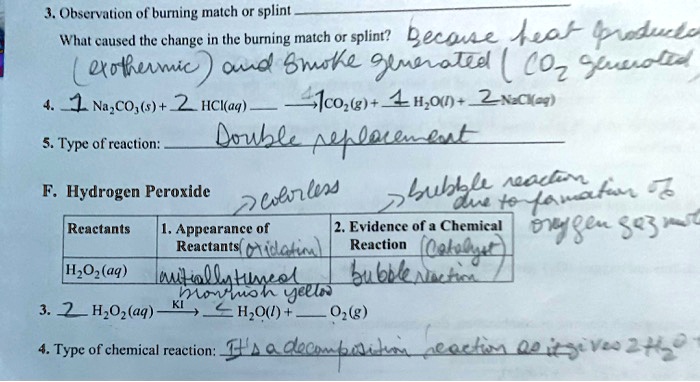 3. Observation of burning match or splint
What caused the change in the burning match or splint? Because heat produced
(exothermic) and smoke generated (CO₂ generated
4. 1 Na₂CO₃(s) + 2 HCl(aq) → 1 CO₂(g) + 1 H₂O(l) + 2 NaCl(aq)
5. Type of reaction: Double replacement
→ colorless
→ bubble reaction
due to formation of
oxygen gas
F. Hydrogen Peroxide
Reactants 1. Appearance of Reactants (oxidation) 2. Evidence of a Chemical Reaction (Catalyst)
H₂O₂(aq) initially turned bubble reaction
brownish yellow
3. 2 H₂O₂(aq) KI → 2 H₂O(l) + O₂(g)
4. Type of chemical reaction: It's a decomposition reaction as it gives 2H₂O